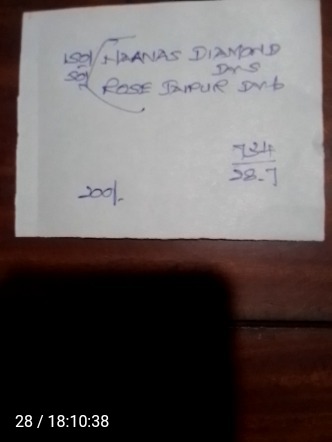 150/ HAANAS DIAMOND
Dr-S
50/ ROSE JAIPUR Dr-b
724
28-7
200/-
28 / 18:10:38